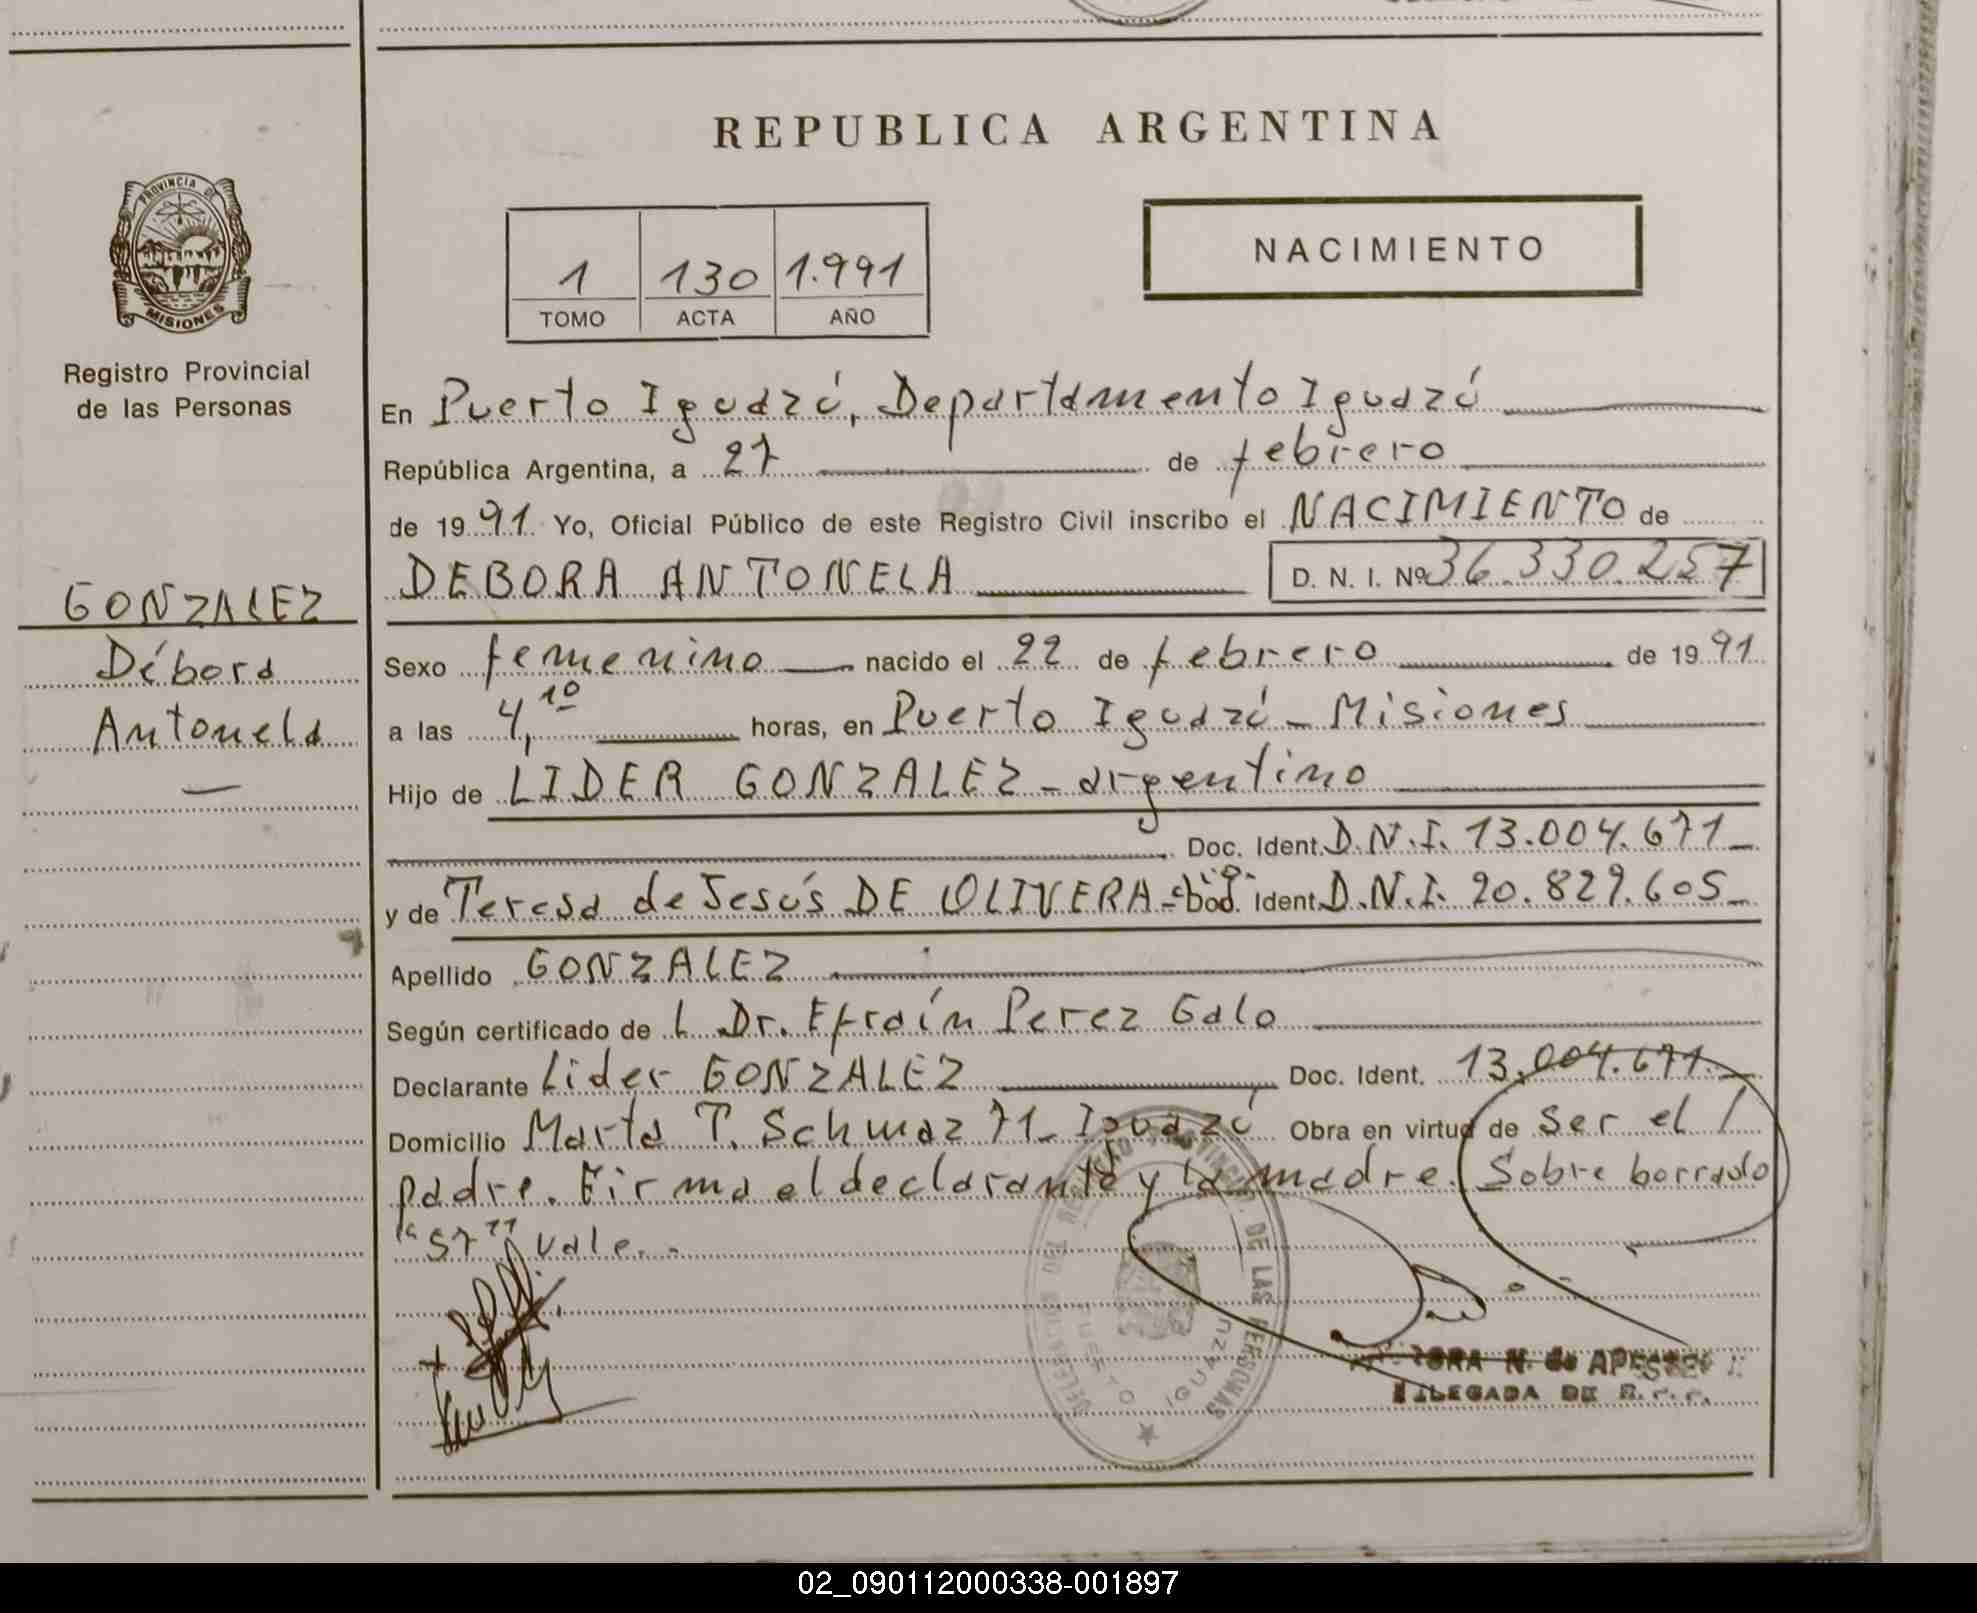 REPUBLICA ARGENTINA
PROVINCIA DE
MISIONES
Registro Provincial
de las Personas
GONZALEZ
Débora
Antonela
1 130 1.991
TOMO ACTA AÑO
NACIMIENTO
En Puerto Iguazú, Departamento Iguazú
República Argentina, a 27 de febrero
de 1991 Yo, Oficial Público de este Registro Civil inscribo el NACIMIENTO de
DEBORA ANTONELA D. N. I. Nº 36.330.257
Sexo femenino nacido el 22 de febrero de 1991
a las 4,10 horas, en Puerto Iguazú - Misiones
Hijo de LIDER GONZALEZ - argentino
Doc. Ident. D.N.I. 13.004.671
y de Teresa de Jesús DE OLIVERA - Doc. Ident. D.N.I. 20.829.605
Apellido GONZALEZ
Según certificado de l Dr. Efraín Perez Galo
Declarante Lider GONZALEZ Doc. Ident. 13.004.671
Domicilio Marta T. Schwaz 71 - Iguazú Obra en virtud de ser el
padre. Firma el declarante y la madre. Sobre borrado
"57" vale.-
DELEGACION DEL REGISTRO PROVINCIAL DE LAS PERSONAS
PUERTO IGUAZU
N. de
DELEGADA DE R.P.P.
02_090112000338-001897